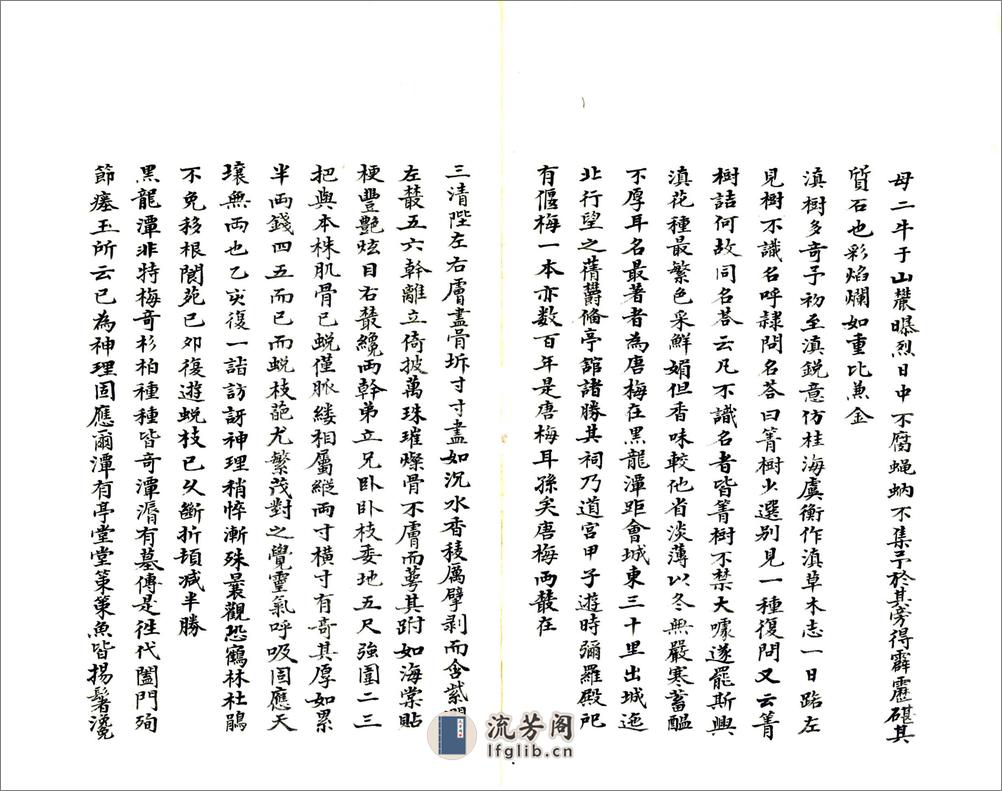 母二牛于山巖曝烈日中不腐蝇蚋不集予於其旁得霹靂碪其
質石也彩焰爛如重比兼金
滇樹多奇予初至滇鋭意仿桂海虞衡作滇草木志一日路左
見樹不識名呼隷問名荅曰箐樹少選别見一種復問又云箐
樹詰何故同名荅云凡不識名者皆箐樹不禁大噱遂罷斯興
滇花種最繁色采鮮媚但香味較他省淡薄以冬無嚴寒蓄醖
不厚耳名最著者為唐梅在黑龍潭距會城東三十里出城迤
北行望之蒨欝脩亭舘諸勝其祠乃道宫甲子遊時彌羅殿戺
有偃梅一本亦数百年是唐梅耳孫矣唐梅两䕺在
三清陛左右膚盡骨坼寸寸盡如沉水香稜厲孽剥而含紫潤
左䕺五六幹離立倚披萬珠璀燦骨不膚而蕚其跗如海棠貼
梗豐艷眩目右䕺纔两幹弟立兄卧卧枝委地五尺強圍二三
把與本株肌骨已蜕僅脉縷相屬縱两寸横寸有奇其厚如累
半两錢四五而已而蜕枝葩尤繁茂對之覺靈氣呼吸固應天
壤無两也乙亥復一詣訪訝神理稍悴漸殊曩觀恐鶴林杜鵑
不免移根閬苑已夘復遊蜕枝已乆斷折頓减半勝
黑龍潭非特梅竒杉柏種種皆奇潭漘有墓傳是徃代闔門殉
節瘞玉所云已為神理固應爾潭有亭堂堂策策魚皆揚鬐瀺
流芳阁
lfglib.cn